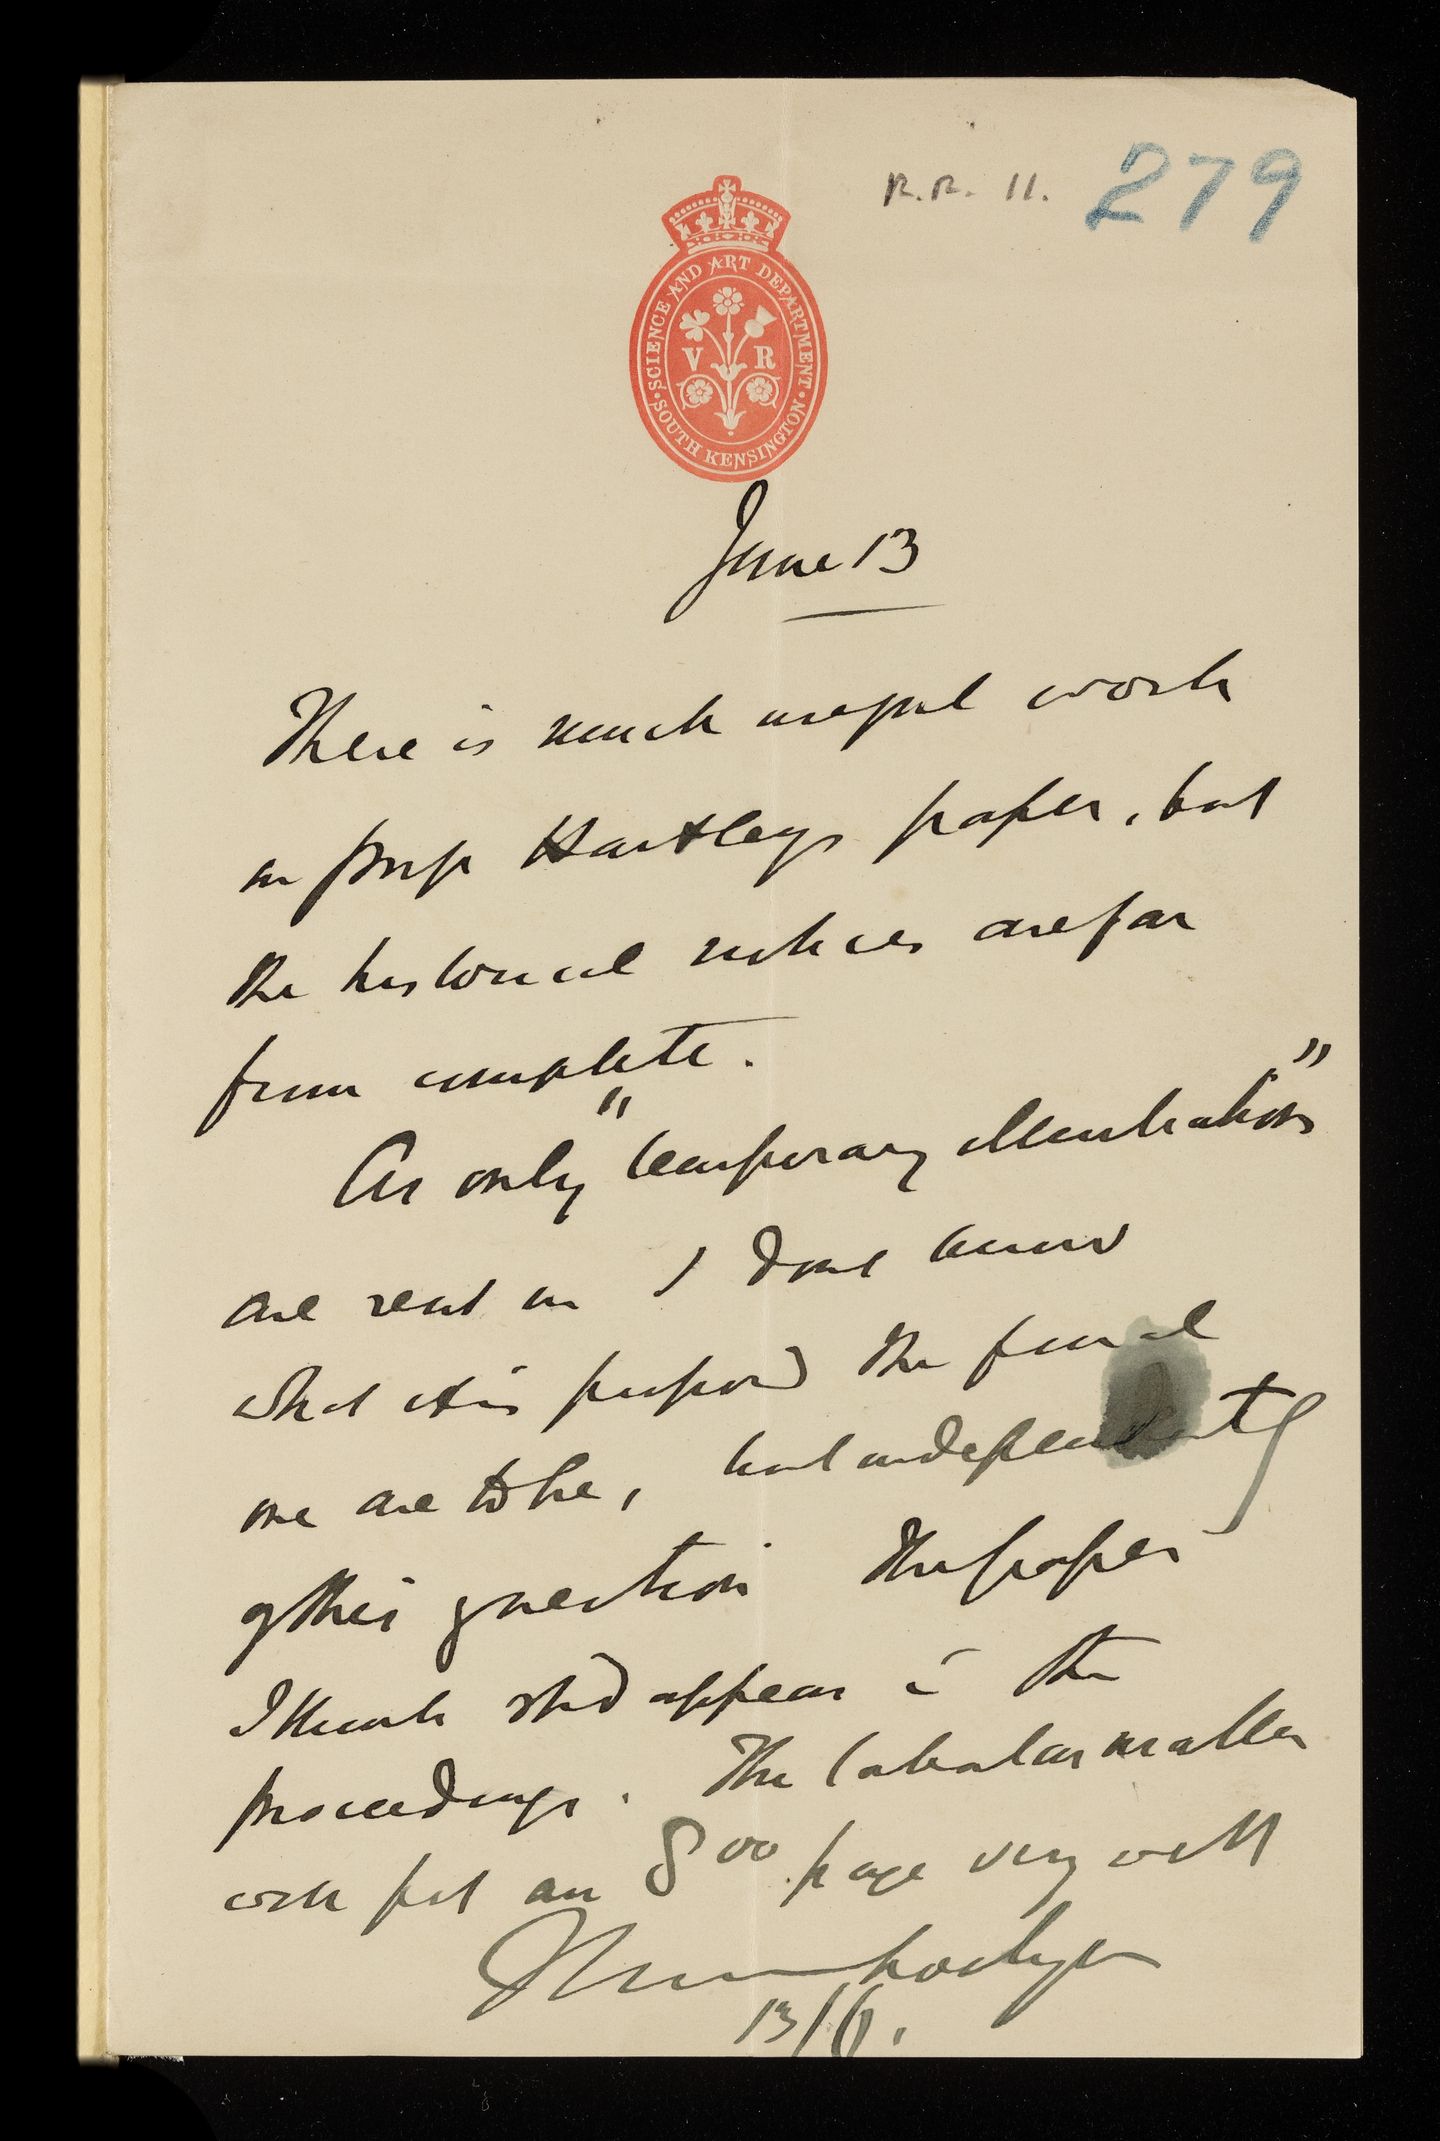 R.R. 11. 279
SCIENCE AND ART DEPARTMENT
SOUTH KENSINGTON
V R
June 13
There is much useful work
in Prof Hartleys paper, but
the historical notices are far
from complete.
As only "temporary illustrations"
are sent in I dont know
what it is proposed the final
one are to be, but independently
of this question The paper
I think shd appear in the
proceedings. The tabular matter
will fit an 8vo page very well
J Norman Lockyer
13/6.